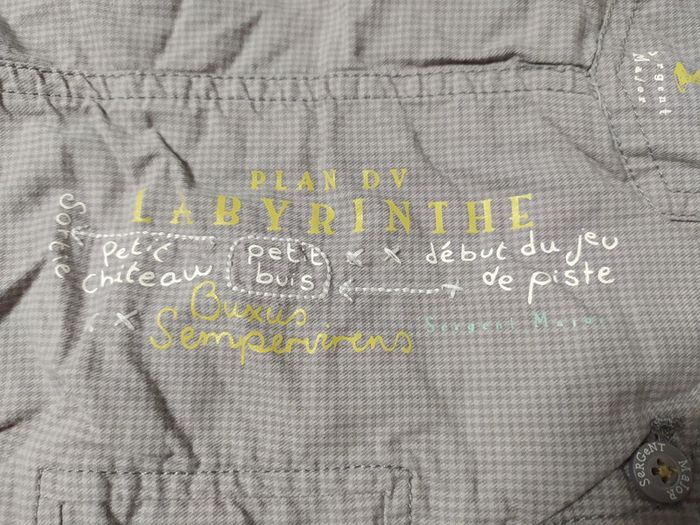 Sergent
Major
PLAN DV
LABYRINTHE
Sortie
petit
château
petit
buis
début du jeu
de piste
Buxus
Sempervirens
Sergent Major
SeRGeNT MaJoR